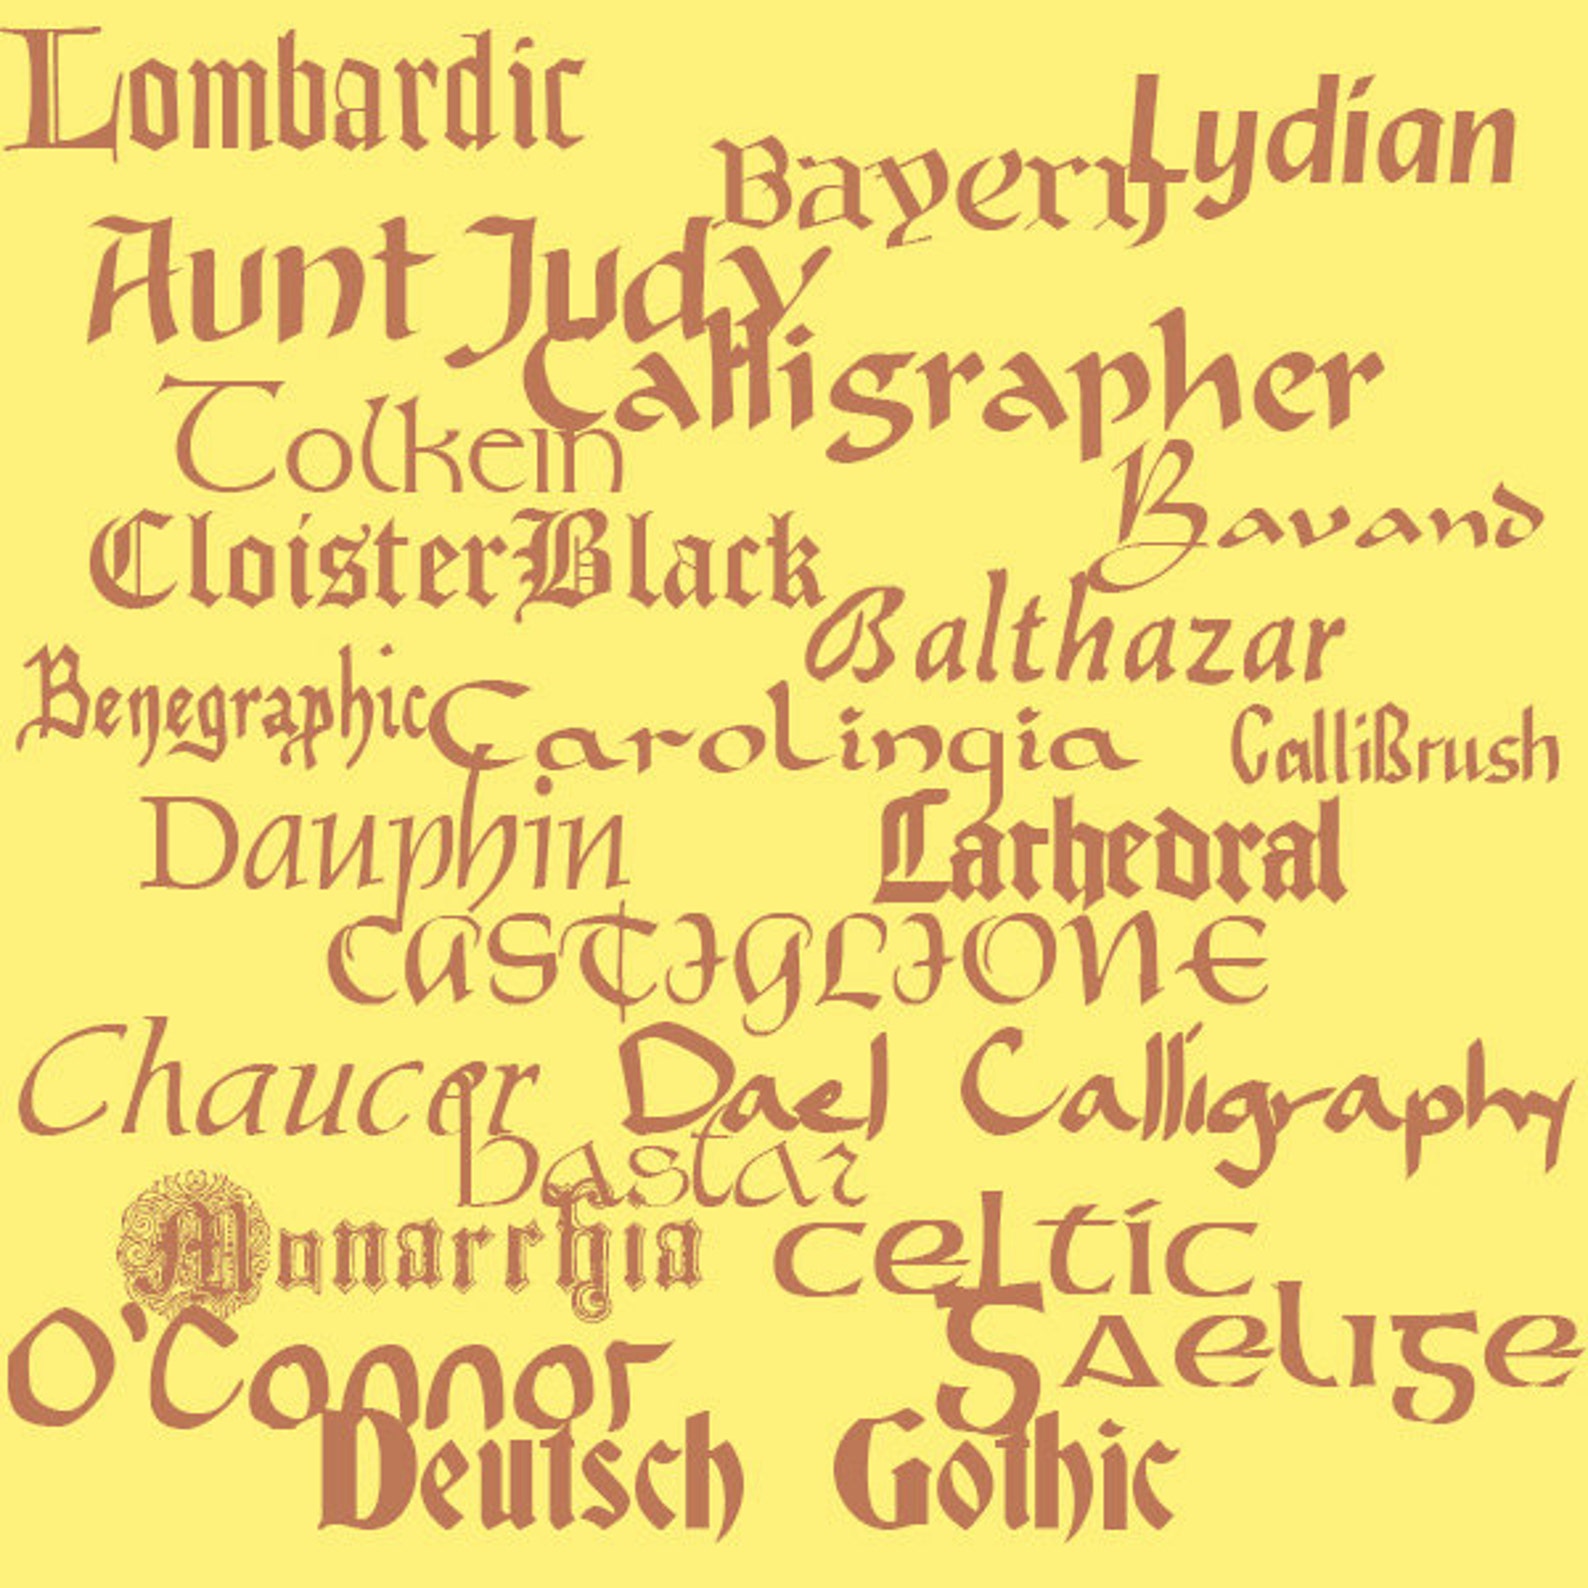 Lombardic
Lydian
Bayern
Aunt Judy
Calligrapher
Tolkein
Bavand
CloisterBlack
Balthazar
Benegraphic
Carolingia
CalliBrush
Dauphin
Cathedral
CASTIGLIONE
Chaucer
Dael Calligraphy
bastar
Monarchia
celtic
O'Connor
Gaelige
Deutsch Gothic